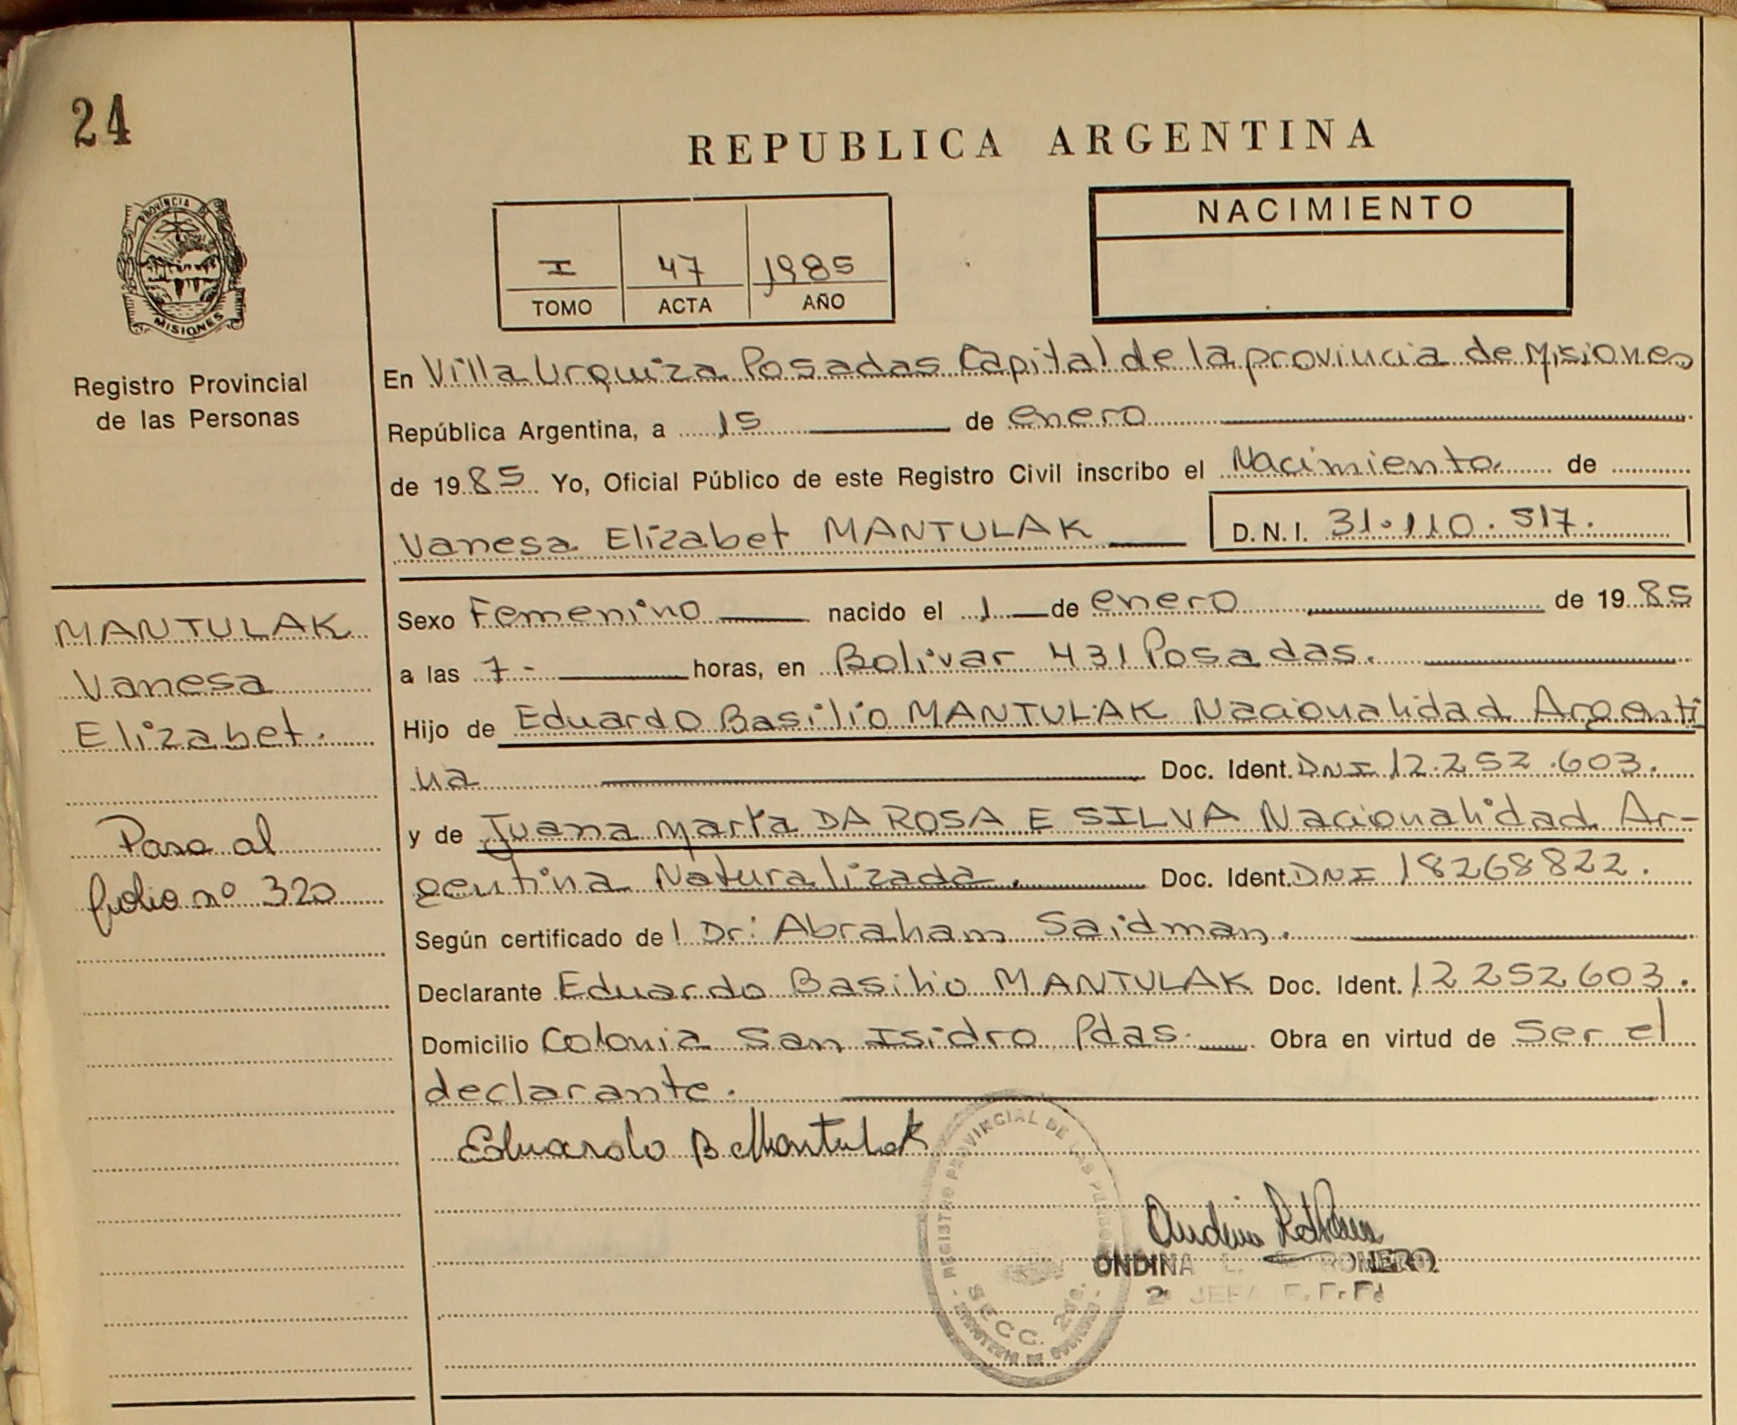 24
REPUBLICA ARGENTINA
PROVINCIA DE
MISIONES
Registro Provincial
de las Personas
I 47 1985
TOMO ACTA AÑO
NACIMIENTO
En Villa Urquiza Posadas Capital de la provincia de Misiones
República Argentina, a 15 de enero
de 1985 Yo, Oficial Público de este Registro Civil inscribo el Nacimiento de
Vanesa Elizabet MANTULAK D.N.I. 31.110.517.
MANTULAK
Vanesa
Elizabet.
Pasa al
folio nº 320
Sexo Femenino nacido el 1 de enero de 1985
a las 7- horas, en Bolivar 431 Posadas.
Hijo de Eduardo Basilio MANTULAK Nacionalidad Argenti
na Doc. Ident. DNI 12.252.603.
y de Juana Marta DA ROSA E SILVA Nacionalidad Ar-
gentina Naturalizada. Doc. Ident. DNI 18268822.
Según certificado del Dr: Abraham Saidman.
Declarante Eduardo Basilio MANTULAK Doc. Ident. 12 252 603.
Domicilio Colonia San Isidro Pdas. Obra en virtud de Ser el
declarante.
Eduardo B Mantulak
REGISTRO PROVINCIAL DE LAS PERSONAS
SECC. 2da.
ONDINA L. ROMERO
2º JEFA